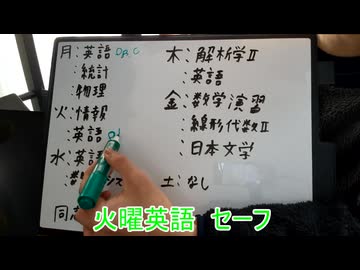 月:英語 DaC
:統計
:物理
火:情報
:英語
水:英語
木:解析学Ⅱ
:英語
金:数学演習
:線形代数Ⅱ
:日本文学
土:なし
火曜英語 セーフ